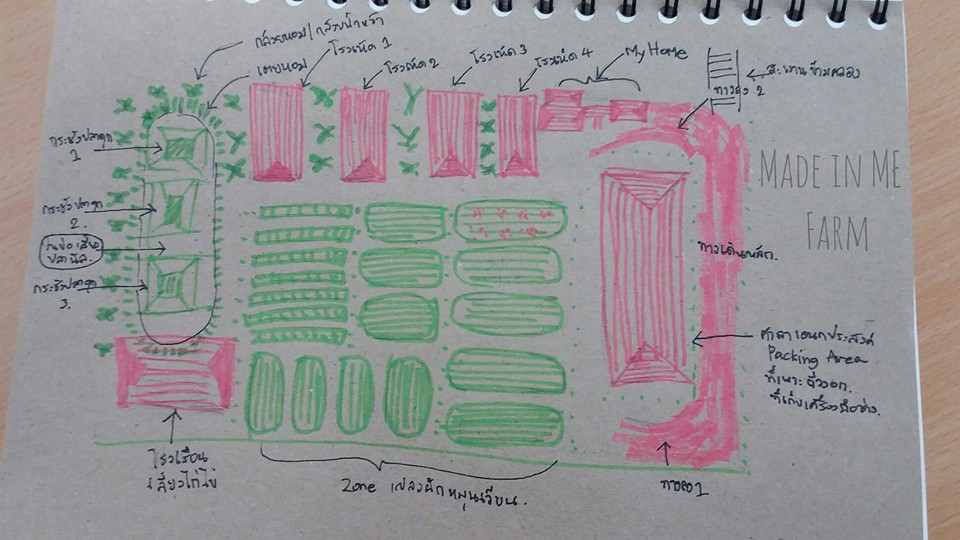 กล้วยหอม/กล้วยน้ำหว้า
เตยหอม
โรงเห็ด 1
โรงเห็ด 2
โรงเห็ด 3
โรงเห็ด 4
My Home
สะพานข้ามคลอง
ทางลง 2
กระชังปลาดุก
1
กระชังปลาดุก
2.
ก้นบ่อเลี้ยง
ปลานิล
กระชังปลาดุก
3.
MADE IN ME
FARM
ทางเดินหลัก.
ศาลาเอนกประสงค์
Packing Area
ที่เพาะถั่วงอก.
ที่เก็บเครื่องมือช่าง.
โรงเรือน
เลี้ยงไก่ไข่
Zone แปลงผักหมุนเวียน.
ทางลง 1